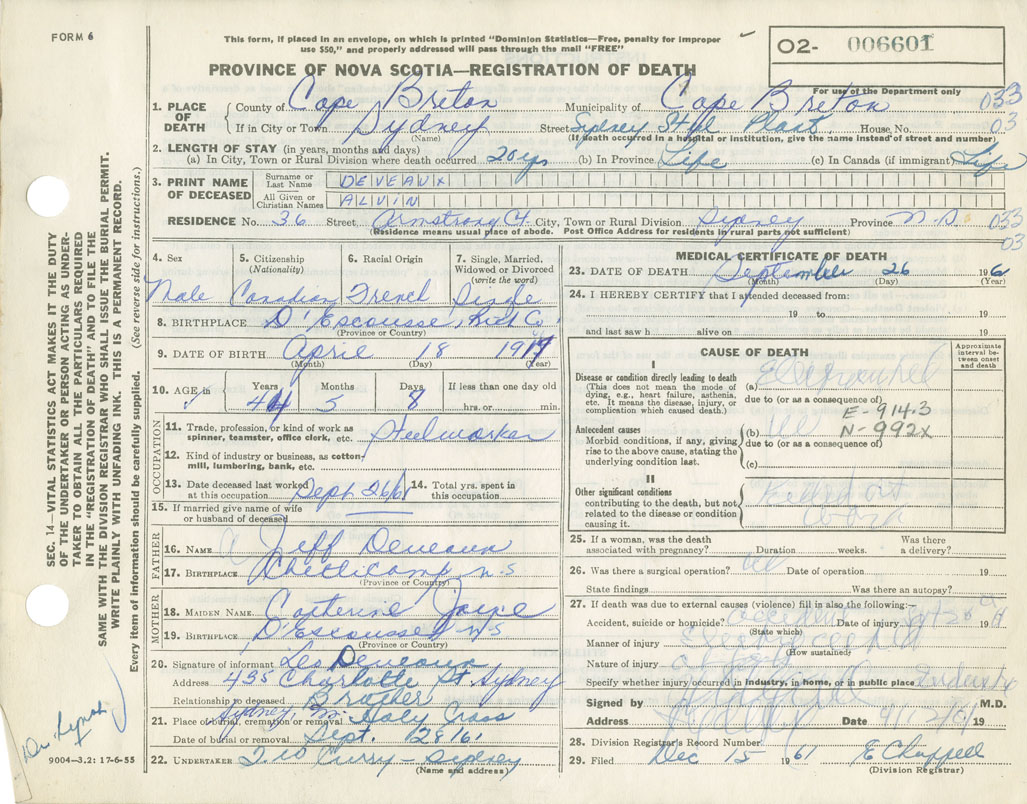 FORM 6
This form, if placed in an envelope, on which is printed "Dominion Statistics—Free, penalty for improper
use $50," and properly addressed will pass through the mail "FREE"
O2- 006601
PROVINCE OF NOVA SCOTIA—REGISTRATION OF DEATH
For use of the Department only
1. PLACE OF DEATH County of Cape Breton Municipality of Cape Breton 033
If in City or Town Sydney Street Sydney Steel Plant House No. 03
(Name) (If death occurred in a hospital or institution, give the name instead of street and number)
2. LENGTH OF STAY (in years, months and days)
(a) In City, Town or Rural Division where death occurred 20 yrs (b) In Province Life (c) In Canada (if immigrant) Life
3. PRINT NAME OF DECEASED Surname or Last Name DEVEAUX
All Given or Christian Names ALVIN
RESIDENCE No. 36 Street Armstrong Ct. City, Town or Rural Division Sydney Province N.S. 033
(Residence means usual place of abode. Post Office Address for residents in rural parts not sufficient) 03
4. Sex 5. Citizenship (Nationality) 6. Racial Origin 7. Single, Married, Widowed or Divorced (write the word)
Male Canadian French Single
8. BIRTHPLACE D'Escousse, Rich Co
(Province or Country)
9. DATE OF BIRTH April 18 1917
(Month) (Day) (Year)
10. AGE in Years Months Days If less than one day old
44 5 8 hrs. or min.
OCCUPATION
11. Trade, profession, or kind of work as
spinner, teamster, office clerk, etc. Steelworker
12. Kind of industry or business, as cotton-
mill, lumbering, bank, etc.
13. Date deceased last worked
at this occupation Sept 26/61 14. Total yrs. spent in
this occupation
15. If married give name of wife
or husband of deceased
FATHER
16. NAME Jeff Deveaux
17. BIRTHPLACE Cheticamp N.S
(Province or Country)
MOTHER
18. MAIDEN NAME Catherine Joyce
19. BIRTHPLACE D'Escousse N.S
(Province or Country)
20. Signature of informant Leo Deveaux
Address 435 Charlotte St Sydney
Relationship to deceased Brother
21. Place of burial, cremation or removal Sydney Holy Cross
Date of burial or removal Sept. 28/61
22. UNDERTAKER T.W Curry - Sydney
(Name and address)
MEDICAL CERTIFICATE OF DEATH
23. DATE OF DEATH September 26 1961
(Month) (Day) (Year)
24. I HEREBY CERTIFY that I attended deceased from:
19 to 19
and last saw h alive on 19
CAUSE OF DEATH
Approximate interval between onset and death
I
Disease or condition directly leading to death
(This does not mean the mode of
dying, e.g., heart failure, asthenia,
etc. It means the disease, injury, or
complication which caused death.)
(a)
due to (or as a consequence of)
E-914.3
Antecedent causes
Morbid conditions, if any, giving
rise to the above cause, stating the
underlying condition last.
(b) N-992x
due to (or as a consequence of)
(c)
II
Other significant conditions
contributing to the death, but not
related to the disease or condition
causing it.
Killed at
work
25. If a woman, was the death
associated with pregnancy? Duration weeks. Was there
a delivery?
26. Was there a surgical operation? Date of operation 19
State findings Was there an autopsy?
27. If death was due to external causes (violence) fill in also the following:—
Accident, suicide or homicide? accident Date of injury Sept 26 19
(State which)
Manner of injury
(How sustained)
Nature of injury
Specify whether injury occurred in industry, in home, or in public place Industry
Signed by M.D.
Address Sydney Date 19
28. Division Registrar's Record Number
29. Filed Dec 15 1961 E Chappell
(Division Registrar)
SEC. 14—VITAL STATISTICS ACT MAKES IT THE DUTY
OF THE UNDERTAKER OR PERSON ACTING AS UNDER-
TAKER TO OBTAIN ALL THE PARTICULARS REQUIRED
IN THE "REGISTRATION OF DEATH" AND TO FILE THE
SAME WITH THE DIVISION REGISTRAR WHO SHALL ISSUE THE BURIAL PERMIT.
WRITE PLAINLY WITH UNFADING INK. THIS IS A PERMANENT RECORD.
Every item of information should be carefully supplied. (See reverse side for instructions.)
Dr. Lynch
9004—3.2: 17-6-55